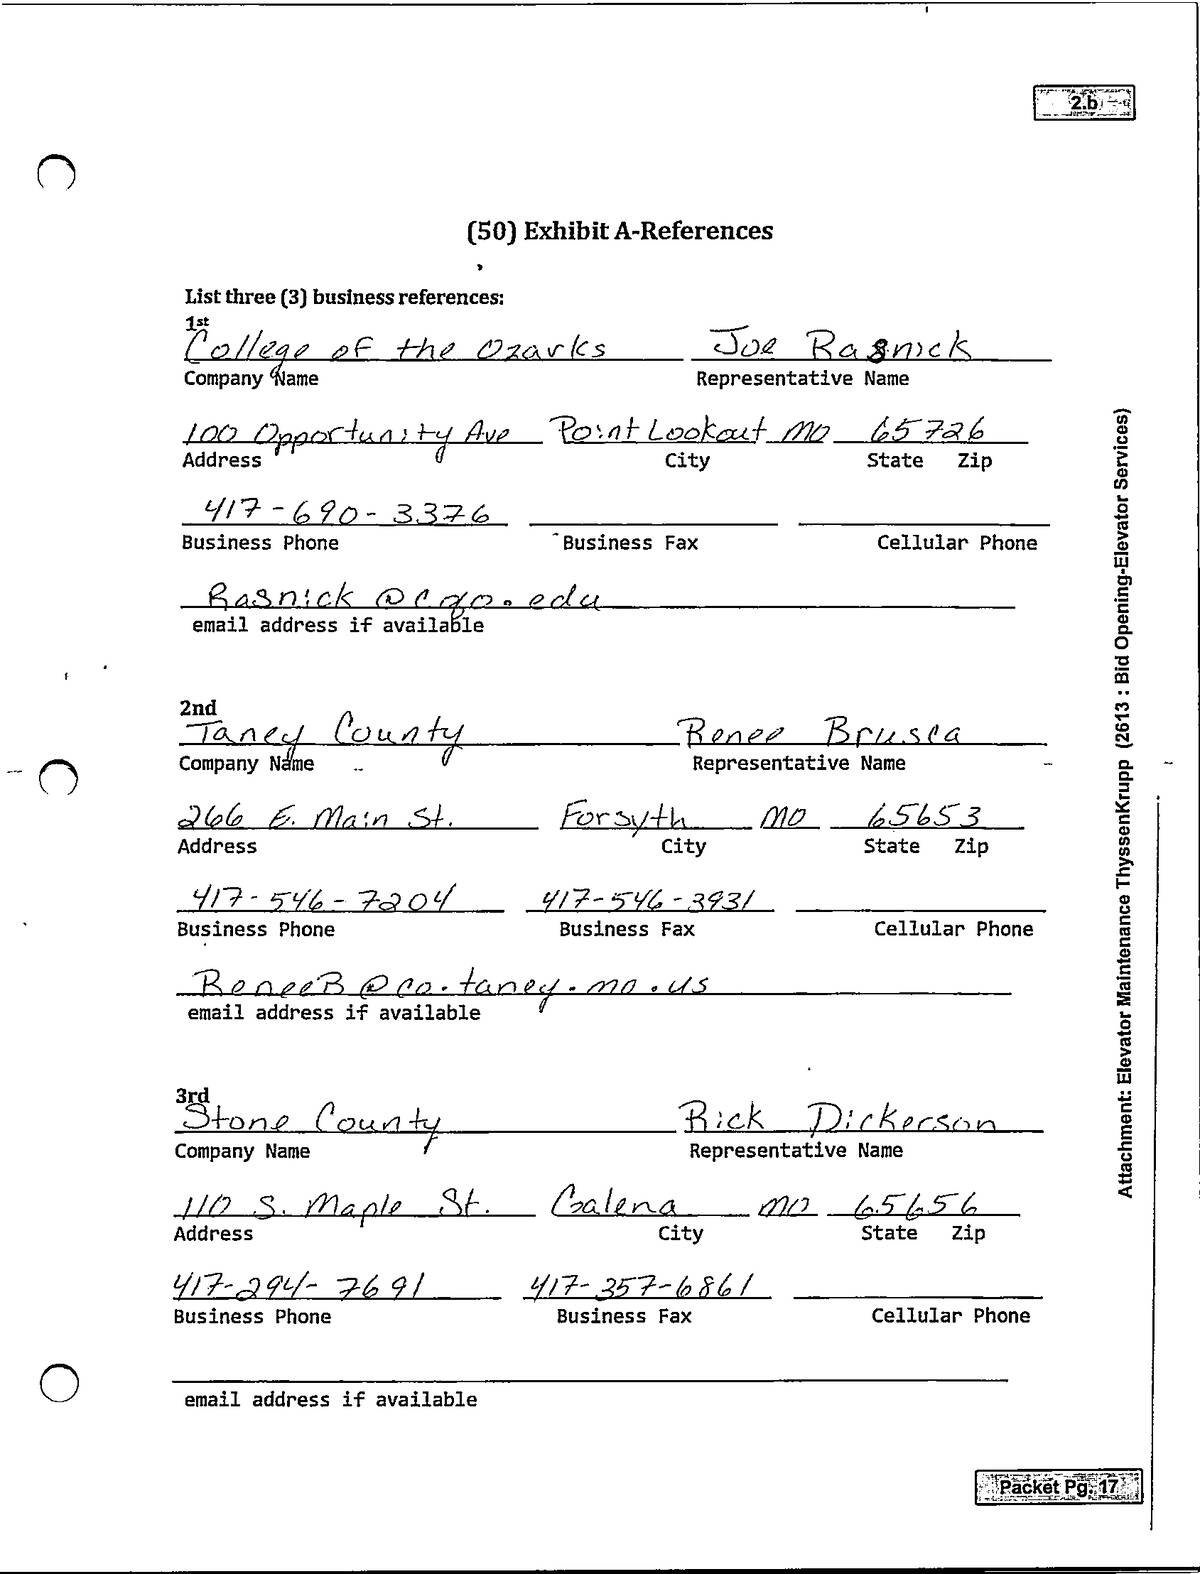 2.b
(50) Exhibit A-References
List three (3) business references:
1st
College of the Ozarks Joe Rasnick
Company Name Representative Name
100 Opportunity Ave Point Lookout MO 65726
Address City State Zip
417-690-3376
Business Phone Business Fax Cellular Phone
Rasnick@cofo.edu
email address if available
2nd
Taney County Renee Brusca
Company Name Representative Name
266 E. Main St. Forsyth MO 65653
Address City State Zip
417-546-7204 417-546-3931
Business Phone Business Fax Cellular Phone
ReneeB@co.taney.mo.us
email address if available
3rd
Stone County Rick Dickerson
Company Name Representative Name
110 S. Maple St. Galena MO 65656
Address City State Zip
417-294-7691 417-357-6861
Business Phone Business Fax Cellular Phone
email address if available
Attachment: Elevator Maintenance ThyssenKrupp (2613 : Bid Opening-Elevator Services)
Packet Pg. 17